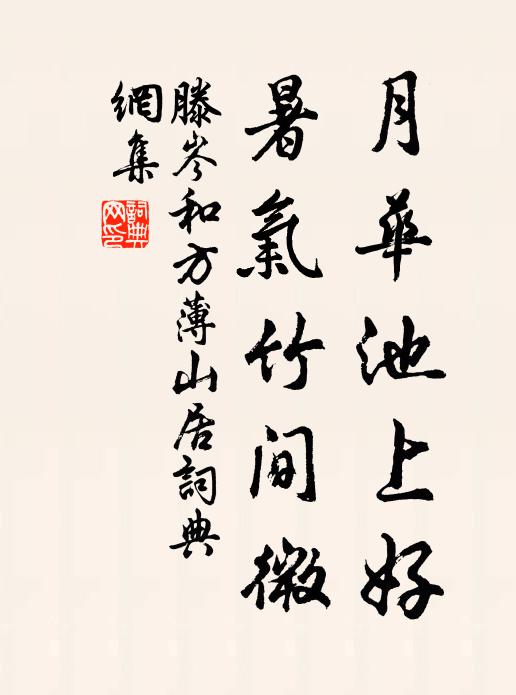 月華池上好
暑氣竹間微
滕岑和方薄山居詞典
網集
詞典
网印